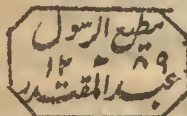 مطيع الرسول
١٢٠٨٩
عبد المقتدر